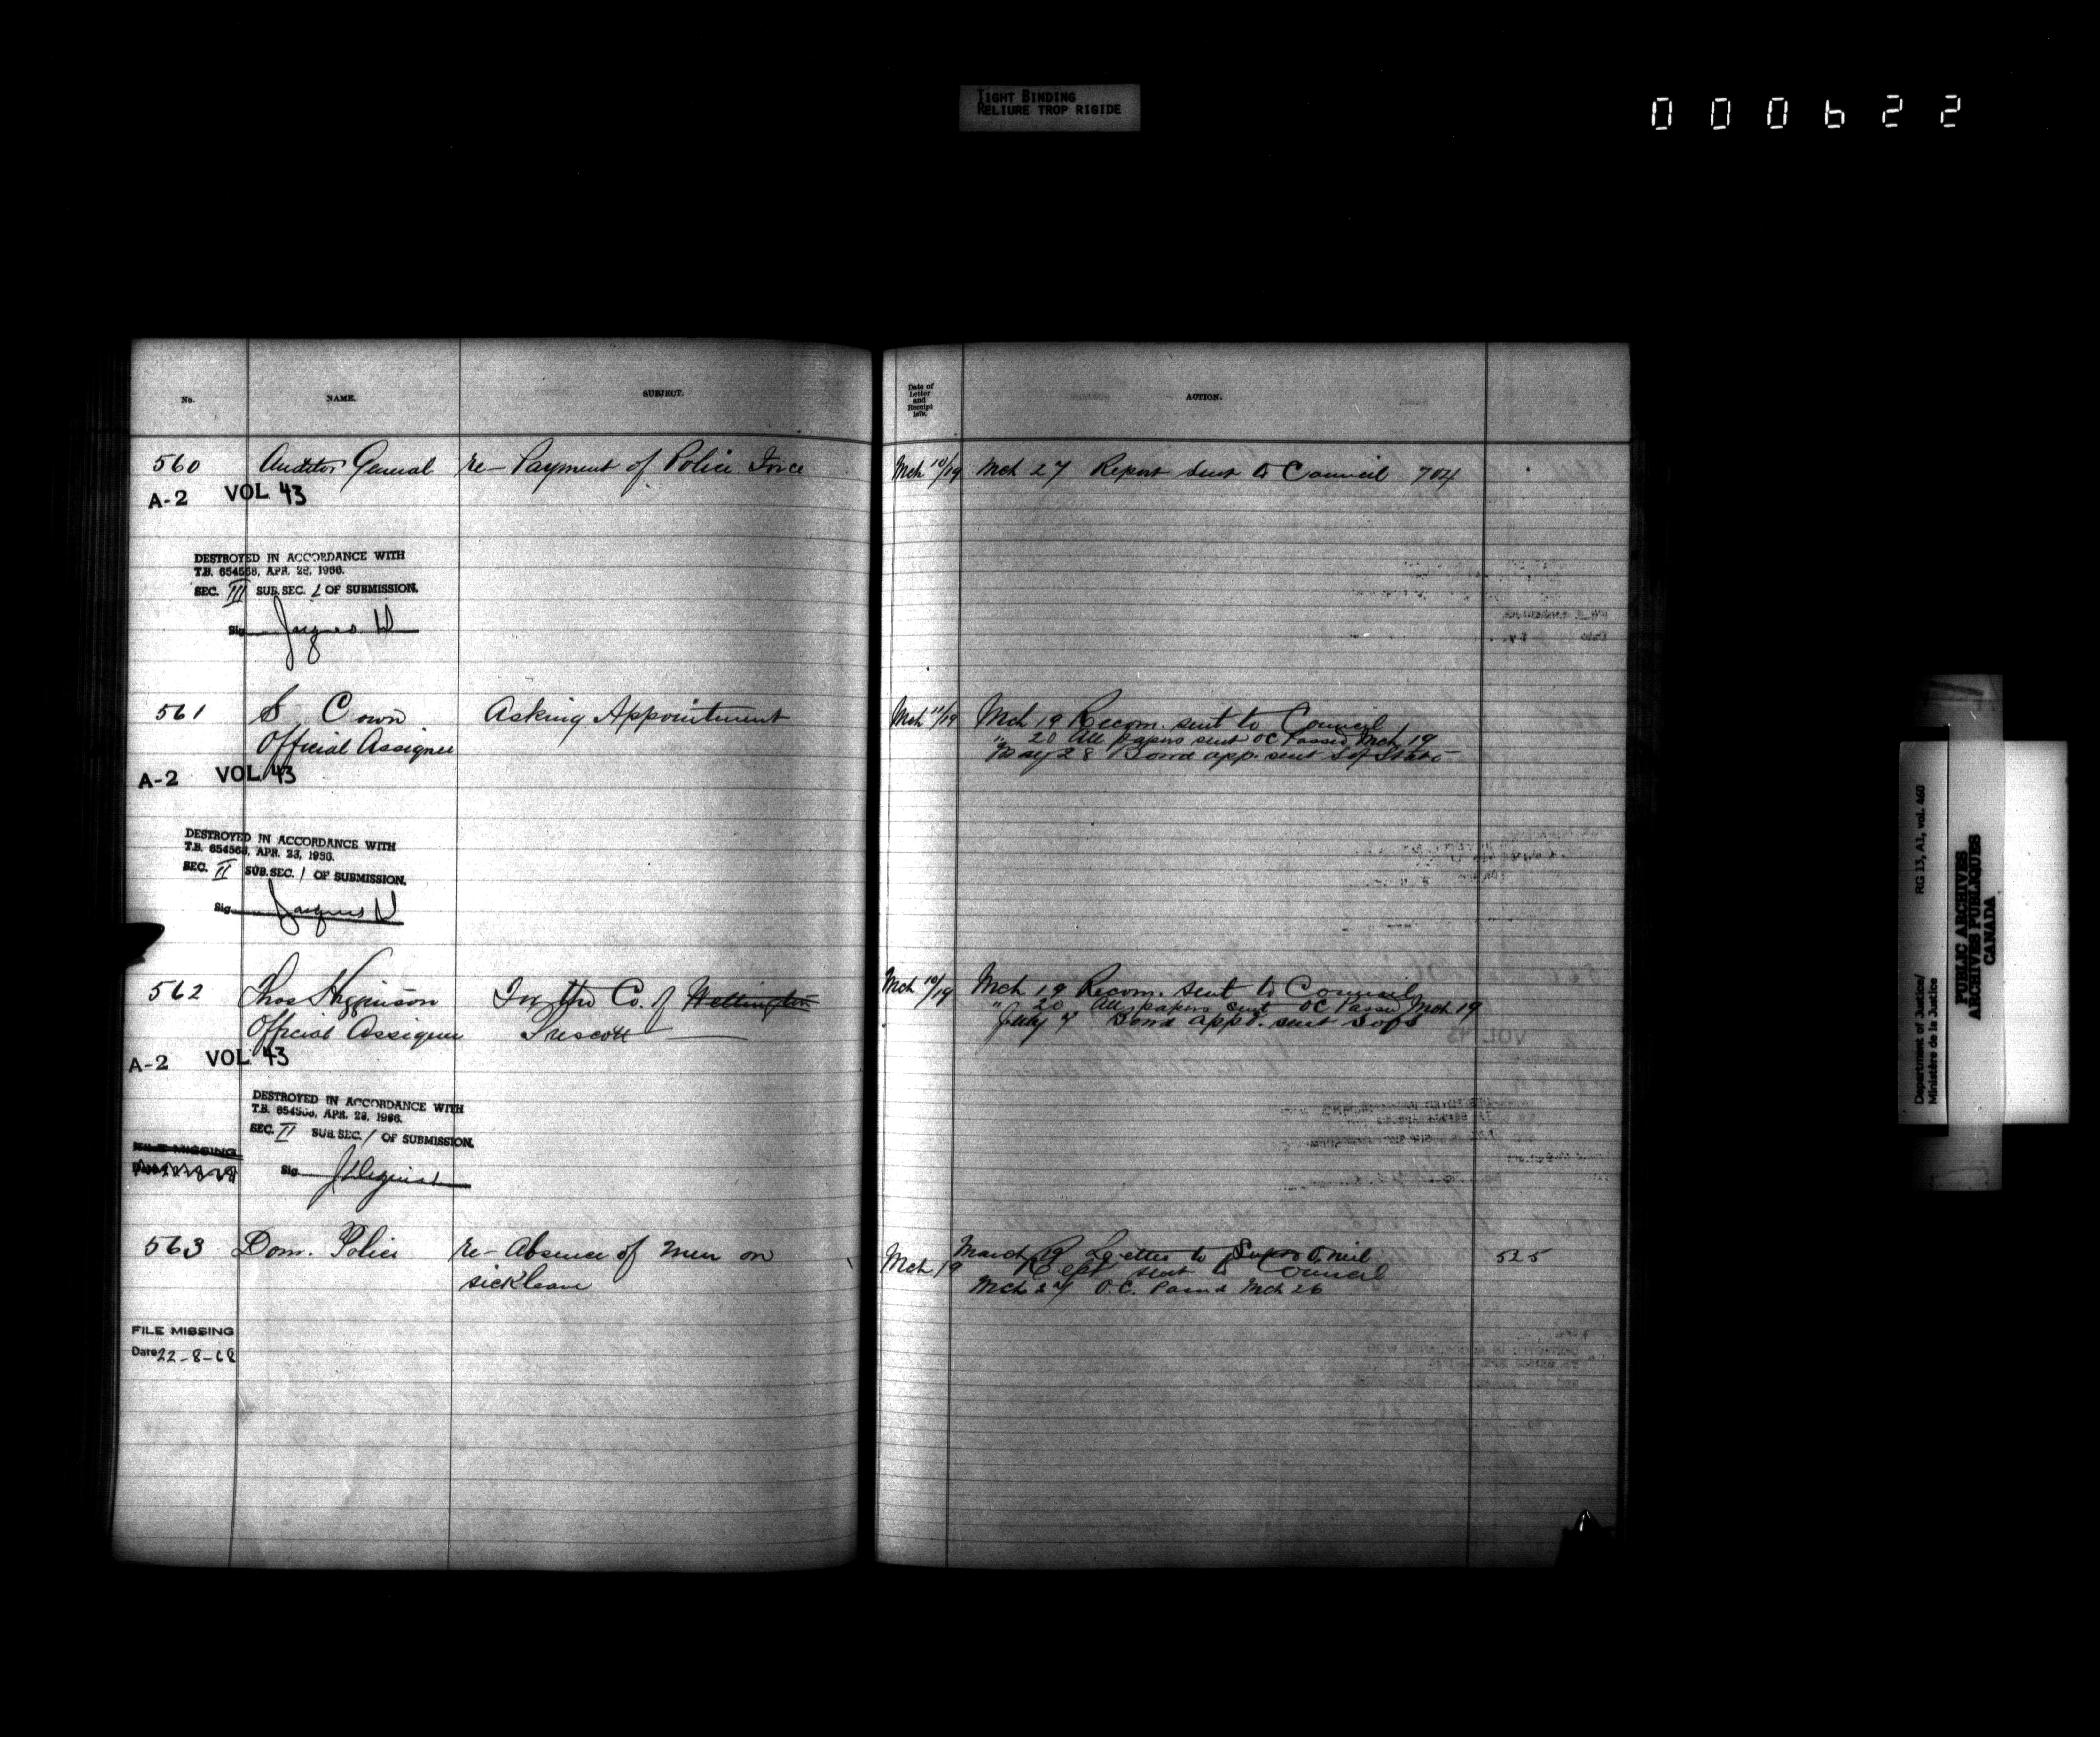 TIGHT BINDING
RELIURE TROP RIGIDE
000622
No.
NAME.
SUBJECT.
Date of
Letter
and
Receipt
ACTION.
560 Auditor General re- Payment of Police Force Mch 10/19 Mch 27 Report sent to Council 704
A-2 VOL 43
DESTROYED IN ACCORDANCE WITH
T.B. 654568, APR. 28, 1966.
SEC. III SUB. SEC. 1 OF SUBMISSION.
Sig. Jacques
561 S Cown Asking Appointment Mch 11/19 Mch 19 Recom. sent to Council
Official Assignee " 20 All papers sent OC Passed Mch 19
May 28 Bond app. sent S of State
A-2 VOL 43
DESTROYED IN ACCORDANCE WITH
T.B. 654568, APR. 28, 1966.
SEC. II SUB. SEC. 1 OF SUBMISSION.
Sig. Jacques
562 Thos Higginson For the Co. of Wellington Mch 10/19 Mch 19 Recom. sent to Council
Official Assignee Prescott " 20 All papers sent OC Passed Mch 19
July 7 Bond appd. sent S of S
A-2 VOL 43
DESTROYED IN ACCORDANCE WITH
T.B. 654568, APR. 28, 1966.
SEC. II SUB. SEC. 1 OF SUBMISSION.
FILE MISSING
Sig.
563 Dom. Police re- Absence of men on Mch 19 March 19 Letter to 525
sick leave Rept sent to Council
Mch 27 O.C. Passed Mch 26
FILE MISSING
Date 22-8-68
Department of Justice/ RG 13, A1, vol. 460
Ministère de la Justice
PUBLIC ARCHIVES
ARCHIVES PUBLIQUES
CANADA